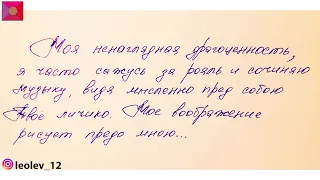 Моя ненаглядная драгоценность,
я часто сажусь за рояль и сочиняю
музыку, видя мысленно пред собою
Твое личико. Мое воображение
рисует предо мною...
leolev_12